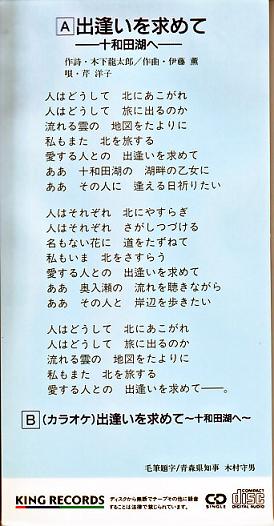 A 出逢いを求めて
―十和田湖へ―
作詩・木下龍太郎/作曲・伊藤 薫
唄・芹 洋子
人はどうして 北にあこがれ
人はどうして 旅に出るのか
流れる雲の 地図をたよりに
私もまた 北を旅する
愛する人との 出逢いを求めて
ああ 十和田湖の 湖畔の乙女に
ああ その人に 逢える日祈りたい
人はそれぞれ 北にやすらぎ
人はそれぞれ さがしつづける
名もない花に 道をたずねて
私もいま 北をさすらう
愛する人との 出逢いを求めて
ああ 奥入瀬の 流れを聴きながら
ああ その人と 岸辺を歩きたい
人はどうして 北にあこがれ
人はどうして 旅に出るのか
流れる雲の 地図をたよりに
私もまた 北を旅する
愛する人との 出逢いを求めて――。
B (カラオケ)出逢いを求めて~十和田湖へ~
毛筆題字/青森県知事 木村守男
KING RECORDS
ディスクから無断でテープその他に録音
することは法律で禁じられています。
CD SINGLE
COMPACT disc DIGITAL AUDIO